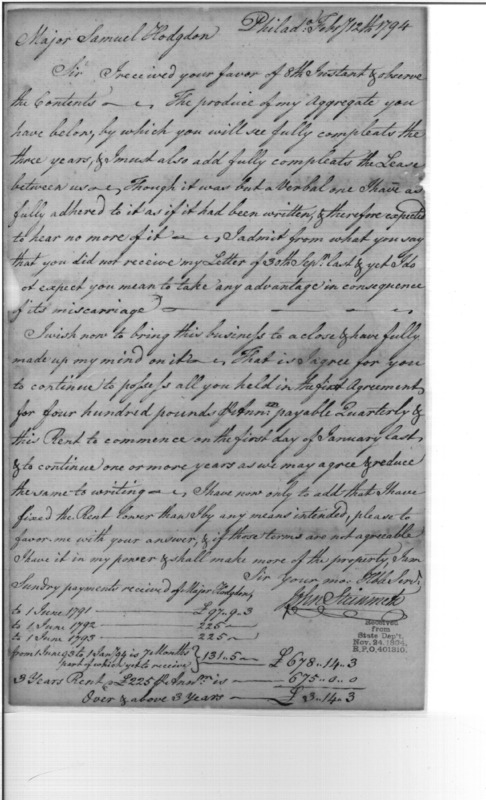 Philada. Feby 12th 1794
Major Samuel Hodgdon
Sir I received your favor of 8th Instant & observe
the Contents — The produce of my Aggregate you
have below, by which you will see fully compleats the
three years, & I must also add fully compleats the Lease
between us — Though it was but a Verbal one I have as
fully adhered to it as if it had been written, & therefore expected
to hear no more of it — I admit from what you say
that you did not receive my Letter of 30th Sepr. last & yet I do
ot expect you mean to take any advantage in consequence
of its miscarriage —
I wish now to bring this business to a close & have fully
made up my mind on it — That is I agree for you
to continue to possess all you held in the first Agreement
for four hundred pounds Pr Annm. payable Quarterly &
this Rent to commence on the first day of January last,
& to continue one or more years as we may agree & reduce
the same to writing — I have now only to add that I have
fixed the Rent lower than I by any means intended, please to
favor me with your answer, & if those terms are not agreeable
I have it in my power & shall make more of the property, I am
Sir Your mo. Hble Servt.
John Steinmetz
Sundry payments received of Major Hodgdon,
to 1 June 1791 — £97..9..3
to 1 June 1792 — 225 —
to 1 June 1793 — 225 —
from 1 June 93 to 1 Jany 94 is 7 Months
part of which yet to receive } 131..5 — £678..14..3
3 Years Rent @ £225 Pr Annm. is — 675..0..0
Over & above 3 Years — £3..14..3
Received
from
State Dep't,
Nov. 24, 1894,
R.P.O. 401810.